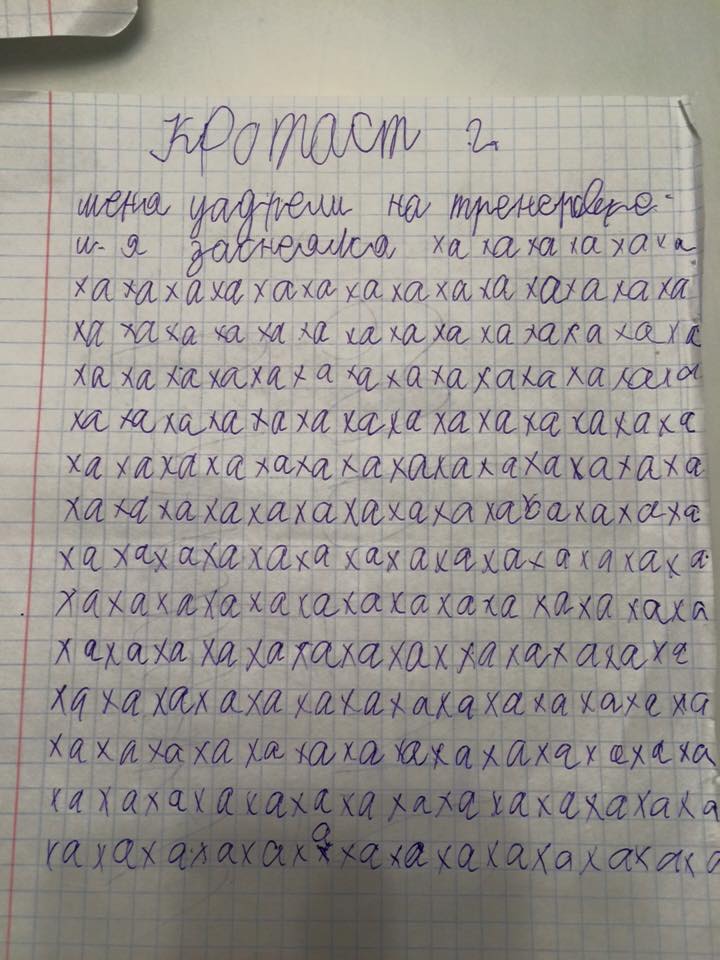 Кротаст 2.
мена уадрели на тренеровке-
и я заснеялка ха ха ха ха хаха
ха ха ха ха ха ха ха ха ха ха ха ха ха ха
ха ха ха ха ха ха ха ха ха ха ха ха ха ха
ха ха ха ха ха ха ха ха ха ха ха ха ха ха
ха ха ха ха ха ха ха ха ха ха ха ха ха ха
ха ха ха ха ха ха ха ха ха ха ха ха ха ха
ха ха ха ха ха ха ха ха ха ха ха ха ха ха
ха ха ха ха ха ха ха ха ха ха ха ха ха ха
ха ха ха ха ха ха ха ха ха ха ха ха ха ха
ха ха ха ха ха ха ха ха х ха ха ха ха ха
ха ха ха ха ха ха ха ха ха ха ха ха ха ха
ха ха ха ха ха ха ха ха ха ха ха ха ха ха
ха ха ха ха ха ха ха ха ха ха ха ха ха ха
ха ха ха ха ха ха ха ха ха ха ха ха ха ха